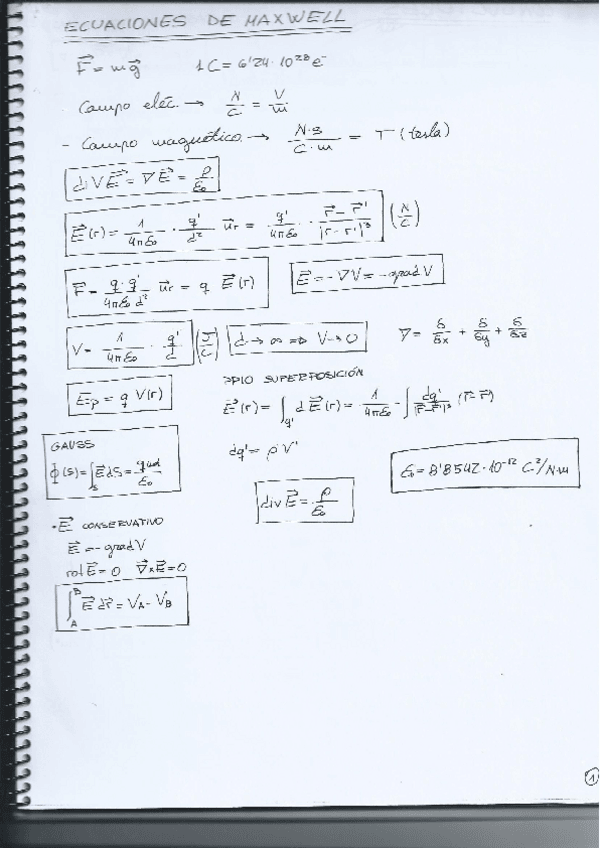 ECUACIONES DE MAXWELL
F⃗ = mg⃗    1C = 6'24·10²⁸ e⁻
Campo eléc. → N/C = V/m
- Campo magnético → N·s/C·m = T (tesla)
div E⃗ = ∇E⃗ = ρ/ε₀
E⃗(r) = 1/4πε₀ · q'/d² u⃗r = q'/4πε₀ · r⃗ - r⃗'/|r - r'|³ (N/C)
F = q·q'/4πε₀ d² u⃗r = q E⃗(r)    E⃗ = -∇V = -grad V
V = 1/4πε₀ · q'/d (J/C)    d → ∞ ⇒ V → 0    ∇ = δ/δx + δ/δy + δ/δz
Ep = q V(r)
PPIO SUPERPOSICIÓN
E⃗(r) = ∫q' dE⃗(r) = 1/4πε₀ - ∫ dq'/|r⃗-r⃗'|³ (r⃗-r⃗')
dq' = ρ V'
GAUSS
ϕ(s) = ∫s E⃗ds = q/ε₀
ε₀ = 8'8542·10⁻¹² C²/N·m
div E⃗ = ρ/ε₀
· E⃗ CONSERVATIVO
E⃗ = -grad V
rot E⃗ = 0    ∇⃗×E⃗ = 0
∫AB E⃗ dr⃗ = VA - VB
1